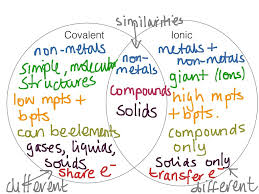 similarities
Covalent
Ionic
non-metals
simple, molecular
structures
low mpts +
bpts
can be elements
gases, liquids,
solids
share e-
different
non-
metals
compounds
solids
metals +
non-metals
giant (ions)
high mpts
+ bpts.
compounds
only
solids only
transfer e-
different